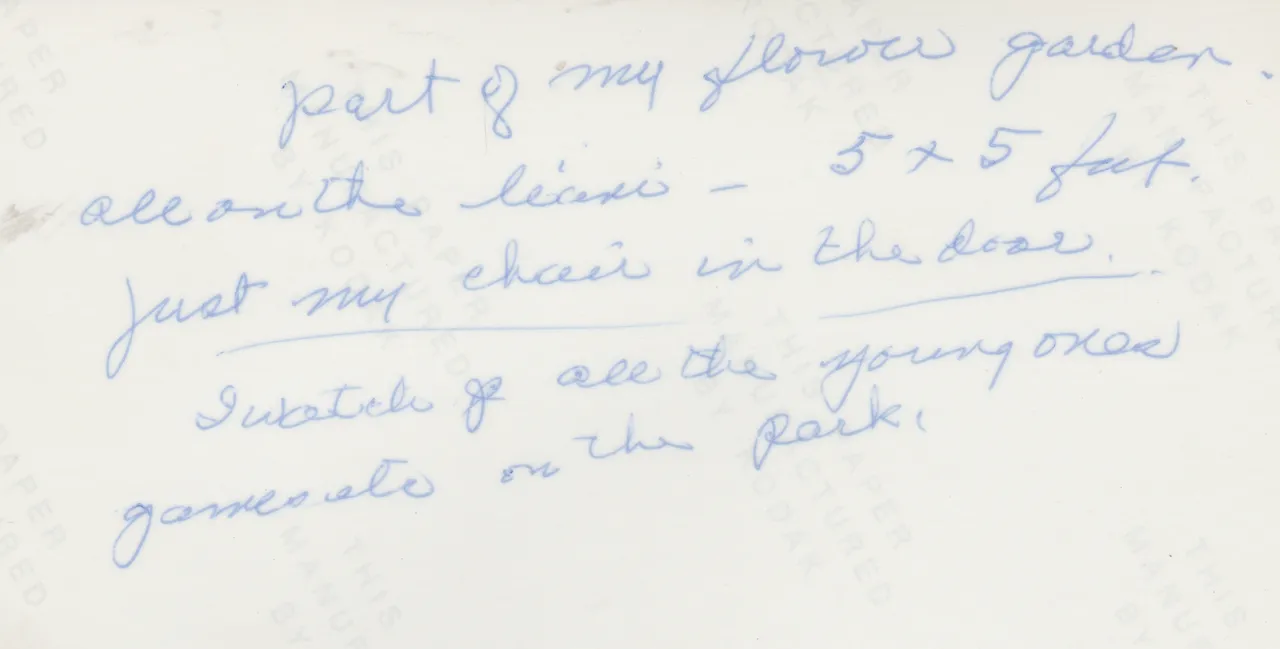 part of my flower garden.
all on the - 5 x 5 feet.
just my chair in the door.
I watch all the young ones
games etc on the park.
THIS PAPER
MANUFACTURED
BY KODAK